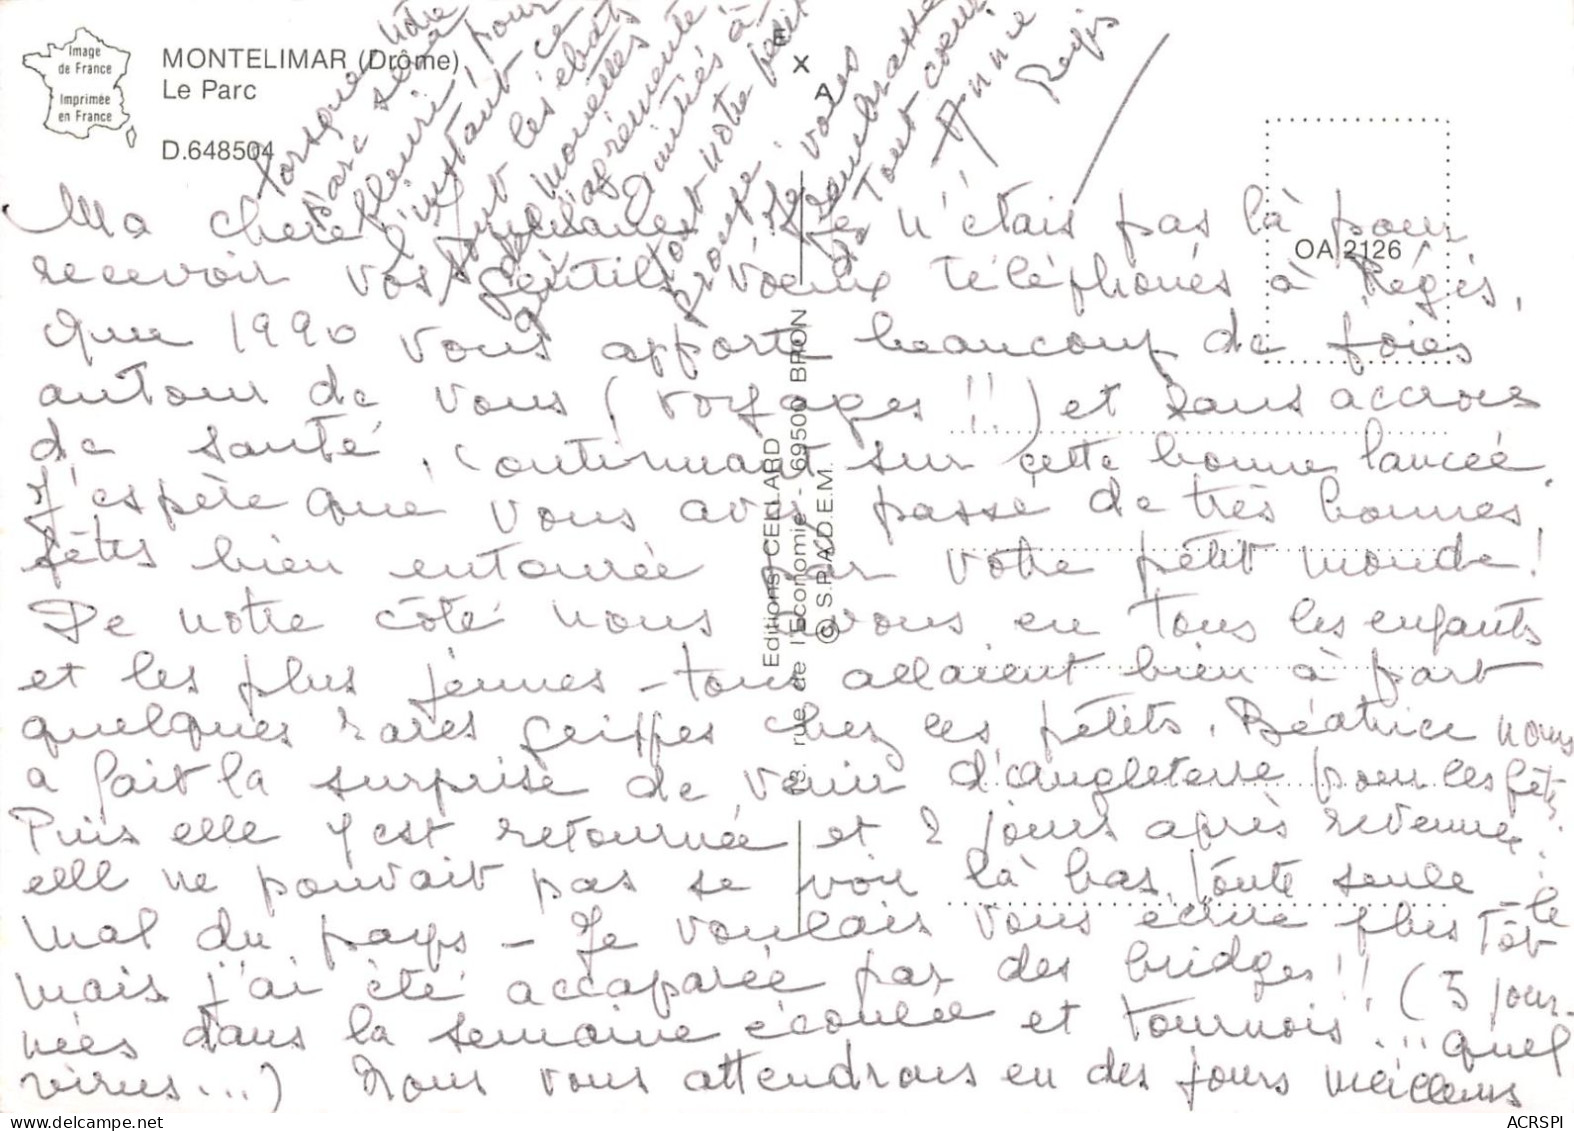 Image
de France
Imprimée
en France
MONTELIMAR (Drôme)
Le Parc
D.648504
E
X
A
OA 2126
Editions CELLARD
rue de l'Economie - 69500 BRON
© S.P.A.D.E.M.
Ma chère Je n'étais pas là pour
recevoir vos gentils voeux téléphonés à Régis,
Que 1990 vous apporte beaucoup de joies
autour de vous (voyages !!) et sans accrocs
de santé, continuant sur cette bonne lancée.
J'espère que vous avez passé de très bonnes
fêtes bien entourée par votre petit monde!
De notre côté nous avons eu tous les enfants
et les plus jeunes - tous allaient bien à part
quelques rares grippes chez les petits. Béatrice nous
a fait la surprise de venir d'angleterre pour les fêtes.
Puis elle y est retournée et 2 jours après revenue:
elle ne pouvait pas se voir là bas, toute seule - le
mal du pays - Je voulais vous écrire plus tôt
mais j'ai été accaparée par des bridges!! (3 jour-
nées dans la semaine écoulée et tournois ... quel
virus...) Nous vous attendrons en des jours meilleurs
lorsque notre
parc sera
fleuri, pour
l'instant ce
sont les ébats
des mouettes
qui l'agrémente
amitiés à
tout notre petit
Je vous
embrasse
de Tout coeur
Annie
Régis
ACRSPI